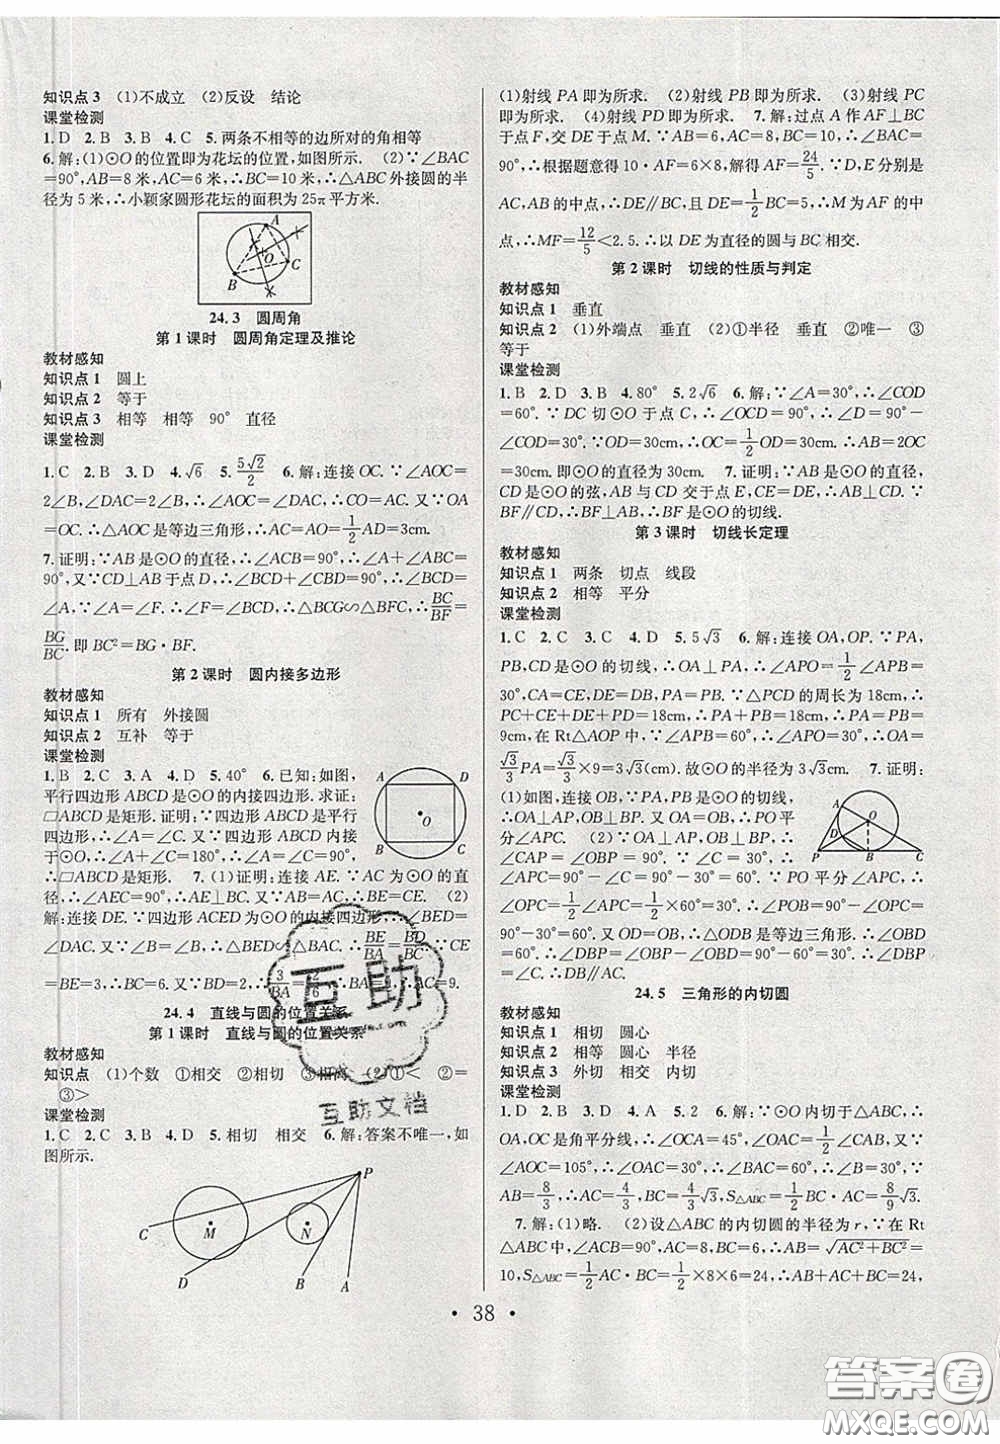 知识点3 (1)不成立 (2)反设 结论
课堂检测
1. D 2. B 3. B 4. C 5. 两条不相等的边所对的角相等
6. 解:(1)⊙O的位置即为花坛的位置,如图所示. (2)∵∠BAC
=90°,AB=8米,AC=6米,∴BC=10米,∴△ABC外接圆的半
径为5米,∴小颖家圆形花坛的面积为25π平方米.
A
O
C
B
24.3 圆周角
第1课时 圆周角定理及推论
教材感知
知识点1 圆上
知识点2 等于
知识点3 相等 相等 90° 直径
课堂检测
1. C 2. B 3. D 4. √6 5. 5√2/2 6. 解:连接OC. ∵∠AOC=
2∠B,∠DAC=2∠B,∴∠AOC=∠DAC,∴AC=OC. 又∵OA
=OC. ∴△AOC是等边三角形,∴AC=AO=1/2AD=3cm.
7. 证明:∵AB是⊙O的直径,∴∠ACB=90°,∴∠A+∠ABC=
90°,又∵CD⊥AB于点D,∴∠ABC+∠BCD=90°,∴∠BCD=
∠A,∵∠F=∠A. ∴∠F=∠BCD,∴△BCG∽△BFC,∴BC/BF=
BG/BC. 即BC²=BG·BF.
第2课时 圆内接多边形
教材感知
知识点1 所有 外接圆
知识点2 互补 等于
课堂检测
1. B 2. C 3. A 4. D 5. 40° 6. 已知:如图,
平行四边形ABCD是⊙O的内接四边形. 求证:
□ABCD是矩形. 证明:∵四边形ABCD是平行
四边形,∴∠A=∠C. 又∵四边形ABCD内接
于⊙O,∴∠A+∠C=180°,∴∠A=∠C=90°,
∴□ABCD是矩形. 7. (1)证明:连接AE. ∵AC为⊙O的直
径,∴∠AEC=90°,∴AE⊥BC. 又∵AB=AC,∴BE=CE. (2)
解:连接DE. ∵四边形ACED为⊙O的内接四边形,∴∠BED=
∠DAC. 又∵∠B=∠B,∴△BED∽△BAC. ∴BE/BA=BD/BC. ∵CE
=BE=3,∴BC=6. 又∵BD=2,∴3/BA=2/6. ∴BA=9. ∴AC=9.
A D
O
B C
24.4 直线与圆的位置关系
第1课时 直线与圆的位置关系
教材感知
知识点 (1)个数 ①相交 ②相切 ③相离 (2)①< ②=
③>
课堂检测
1. C 2. C 3. B 4. D 5. 相切 相交 6. 解:答案不唯一,如
图所示.
P
C M N
D B A
(1)射线PA即为所求. (2)射线PB即为所求. (3)射线PC
即为所求. (4)射线PD即为所求. 7. 解:过点A作AF⊥BC
于点F,交DE于点M. ∵AB=6,AC=8,BC=10,∴∠BAC=
90°,∴根据题意得10·AF=6×8,解得AF=24/5. ∵D,E分别是
AC,AB的中点,∴DE∥BC,且DE=1/2BC=5,∴M为AF的中
点,∴MF=12/5<2.5. ∴以DE为直径的圆与BC相交.
第2课时 切线的性质与判定
教材感知
知识点1 垂直
知识点2 (1)外端点 垂直 (2)①半径 垂直 ②唯一 ③
等于
课堂检测
1. B 2. D 3. B 4. 80° 5. 2√6 6. 解:∵∠A=30°,∴∠COD
=60°. ∵DC切⊙O于点C,∴∠OCD=90°,∴∠D=90°-
∠COD=30°. ∵OD=30cm,∴OC=1/2OD=15cm. ∴AB=2OC
=30cm. 即⊙O的直径为30cm. 7. 证明:∵AB是⊙O的直径,
CD是⊙O的弦,AB与CD交于点E,CE=DE,∴AB⊥CD. ∵
BF∥CD,∴BF⊥AB,∴BF是⊙O的切线.
第3课时 切线长定理
教材感知
知识点1 两条 切点 线段
知识点2 相等 平分
课堂检测
1. C 2. C 3. C 4. D 5. 5√3 6. 解:连接OA,OP. ∵PA,
PB,CD是⊙O的切线,∴OA⊥PA,∠APO=1/2∠APB=
30°,CA=CE,DE=DB,PA=PB. ∵△PCD的周长为18cm,∴
PC+CE+DE+PD=18cm,∴PA+PB=18cm,∴PA=PB=
9cm,在Rt△AOP中,∵∠APB=60°,∴∠APO=30°. ∴AO=
√3/3PA=√3/3×9=3√3(cm). 故⊙O的半径为3√3cm. 7. 证明:
(1)如图,连接OB,∵PA,PB是⊙O的切线,
∴OA⊥AP,OB⊥BP. 又OA=OB,∴PO平
分∠APC. (2)∵OA⊥AP,OB⊥BP,∴
∠CAP=∠OBP=90°. ∵∠C=30°,∴
∠APC=90°-∠C=90°-30°=60°. ∵PO平分∠APC,∴
∠OPC=1/2∠APC=1/2×60°=30°,∴∠POB=90°-∠OPC=
90°-30°=60°. 又OD=OB,∴△ODB是等边三角形,∴∠OBD
=60°. ∴∠DBP=∠OBP-∠OBD=90°-60°=30°. ∴∠DBP
=∠C,∴DB∥AC.
A
O
D
P B C
24.5 三角形的内切圆
知识点1 相切 圆心
知识点2 相等 圆心 半径
知识点3 外切 相交 内切
课堂检测
1. D 2. D 3. A 4. 5 5. 2 6. 解:∵⊙O内切于△ABC,∴
OA,OC是角平分线,∴∠OCA=45°,∠OAC=1/2∠BAC. ∵
∠AOC=105°,∴∠OAC=30°,∴∠BAC=60°,∠B=30°. ∵
AB=8/3,∴AC=4/3,BC=4/3√3,S△ABC=1/2AC·BC=8/9√3.
7. 解:(1)略. (2)设△ABC的内切圆的半径为r,∵在Rt
△ABC中,∠C=90°,AC=8,BC=6,∴AB=√AC²+BC²=
10,S△ABC=1/2AC·BC=1/2×8×6=24,∴AB+AC+BC=24,
· 38 ·
互助
互助文档
答案圈
MXQE.COM